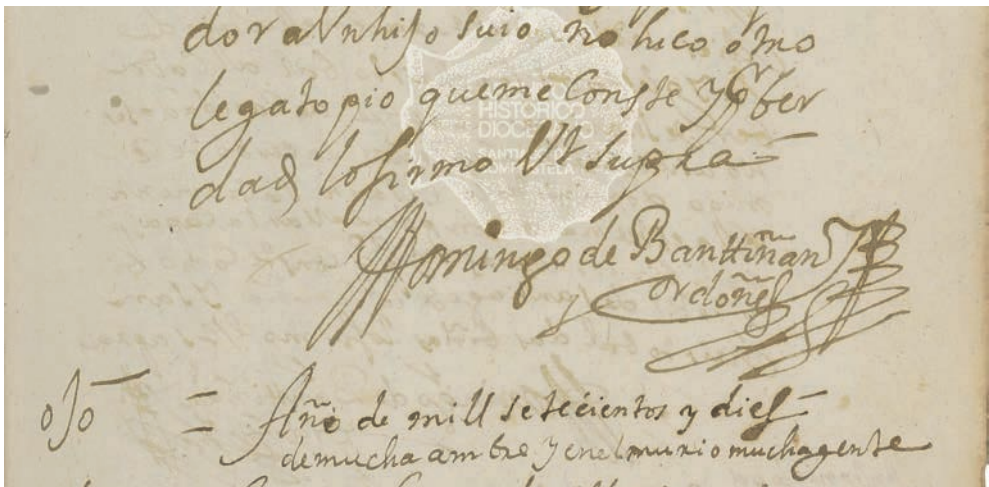 dor a Vn hijo suio no hiço otro
legato pio que me Conste y Por ber
dad lo firmo Vt supra
Domingo de Banttiñan
y Ordoñes
ojo = Año de mill setecientos y dies
de mucha ambre y en el murio mucha gente
HISTÓRICO
DIOCESANO
SANTIAGO DE
COMPOSTELA